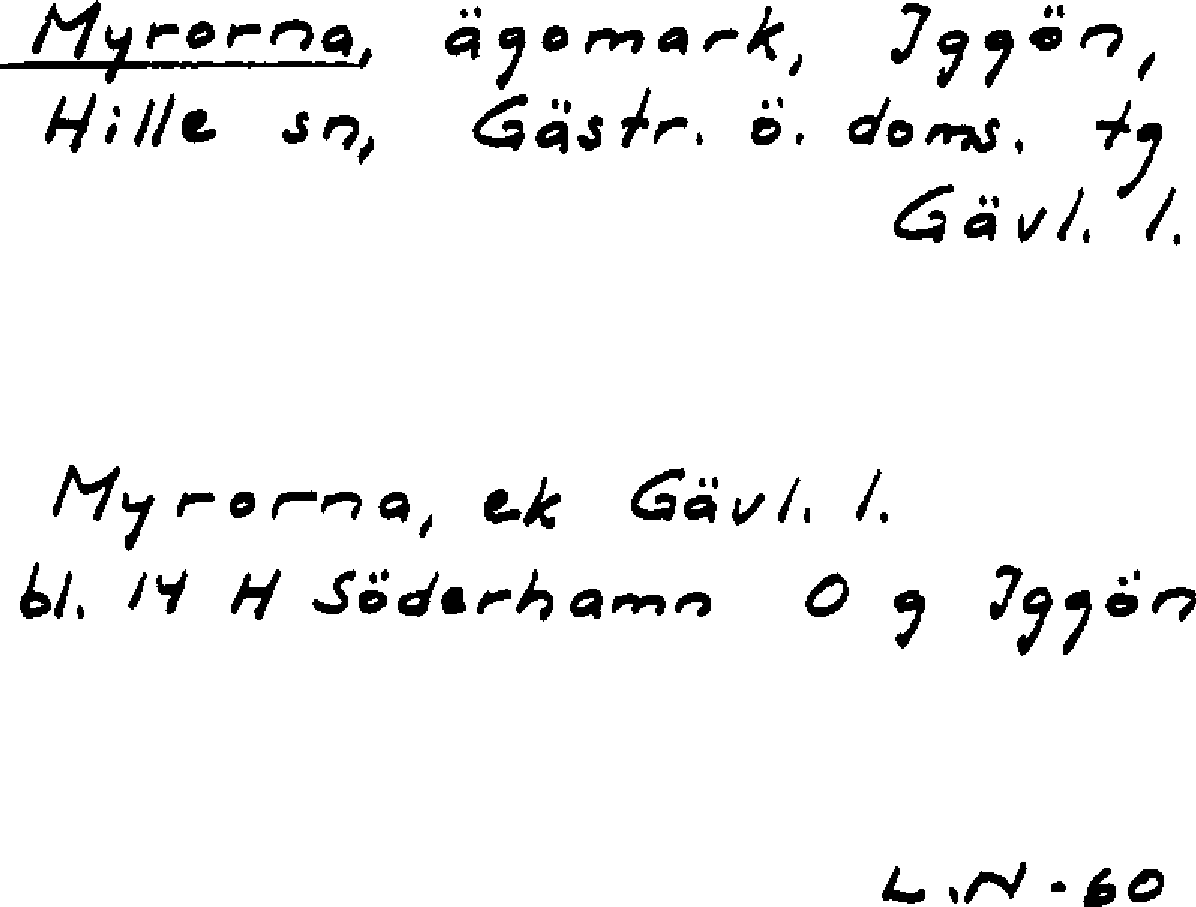 Myrorna, ägomark, Iggön,
Hille sn, Gästr. ö. doms. tg
Gävl. l.
Myrorna, ek Gävl. l.
bl. 14 H Söderhamn O g Iggön
L.N-60